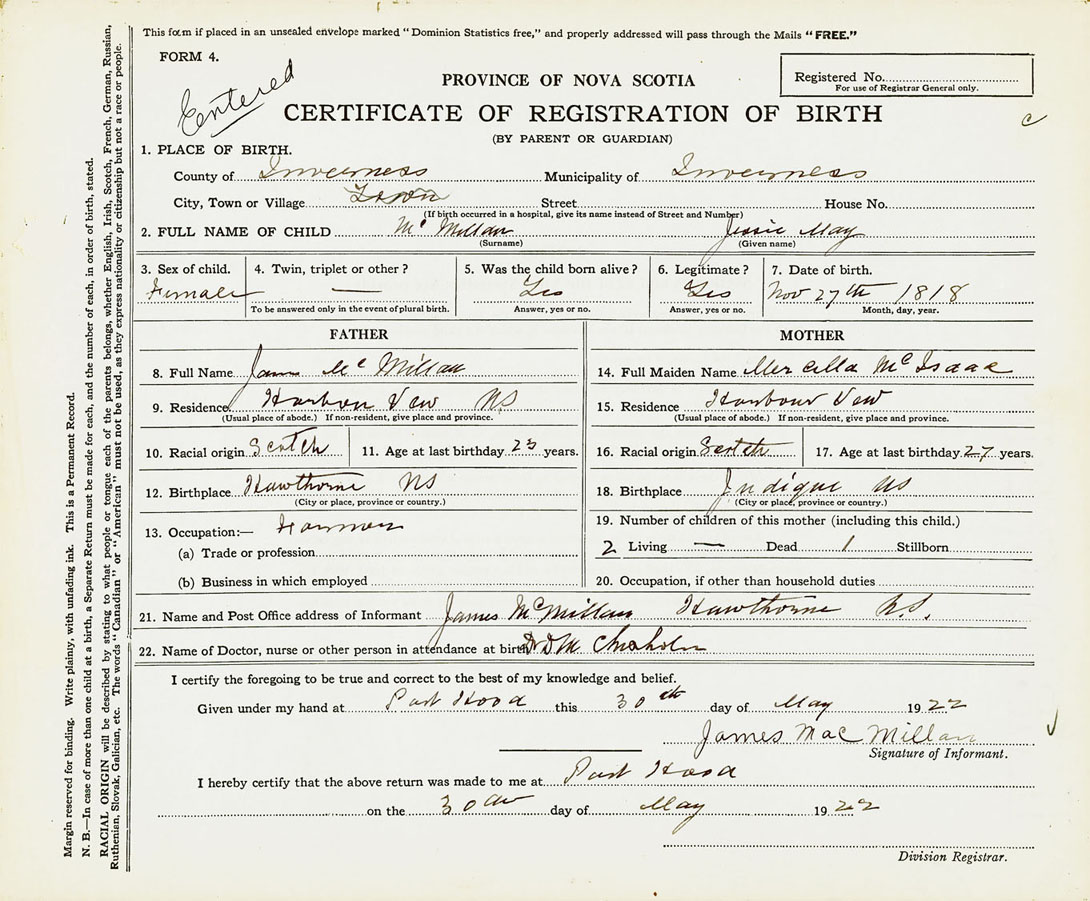 This form if placed in an unsealed envelope marked "Dominion Statistics free," and properly addressed will pass through the Mails "FREE."
FORM 4.
Entered
Registered No.
For use of Registrar General only.
PROVINCE OF NOVA SCOTIA
CERTIFICATE OF REGISTRATION OF BIRTH
(BY PARENT OR GUARDIAN)
1. PLACE OF BIRTH.
County of Inverness Municipality of Inverness
City, Town or Village Street House No.
(If birth occurred in a hospital, give its name instead of Street and Number)
2. FULL NAME OF CHILD Mc Millan Jessie May
(Surname) (Given name)
3. Sex of child. 4. Twin, triplet or other? 5. Was the child born alive? 6. Legitimate? 7. Date of birth.
Female — Yes Yes Nov 27th 1818
To be answered only in the event of plural birth. Answer, yes or no. Answer, yes or no. Month, day, year.
FATHER MOTHER
8. Full Name James Mc Millan 14. Full Maiden Name McIsaac
9. Residence Harbor Vew NS 15. Residence Harbour Vew
(Usual place of abode.) If non-resident, give place and province. (Usual place of abode.) If non-resident, give place and province.
10. Racial origin Scotch 11. Age at last birthday 23 years. 16. Racial origin Scotch 17. Age at last birthday 27 years.
12. Birthplace Hawthorne NS 18. Birthplace Judique NS
(City or place, province or country.) (City or place, province or country.)
13. Occupation:— 19. Number of children of this mother (including this child.)
(a) Trade or profession 2 Living — Dead 1 Stillborn
(b) Business in which employed 20. Occupation, if other than household duties
21. Name and Post Office address of Informant James McMillan Hawthorne N.S.
22. Name of Doctor, nurse or other person in attendance at birth Dr D M Chisholm
I certify the foregoing to be true and correct to the best of my knowledge and belief.
Given under my hand at Port Hood this 30th day of May 1922
James Mac Millan
Signature of Informant.
I hereby certify that the above return was made to me at Port Hood
on the 30 day of May 1922
Division Registrar.
Margin reserved for binding. Write plainly, with unfading ink. This is a Permanent Record.
N. B.—In case of more than one child at a birth, a Separate Return must be made for each, and the number of each, in order of birth, stated.
RACIAL ORIGIN will be described by stating to what people or tongue each of the parents belongs, whether English, Irish, Scotch, French, German, Russian,
Ruthenian, Slovak, Galician, etc. The words "Canadian" or "American" must not be used, as they express nationality or citizenship but not a race or people.